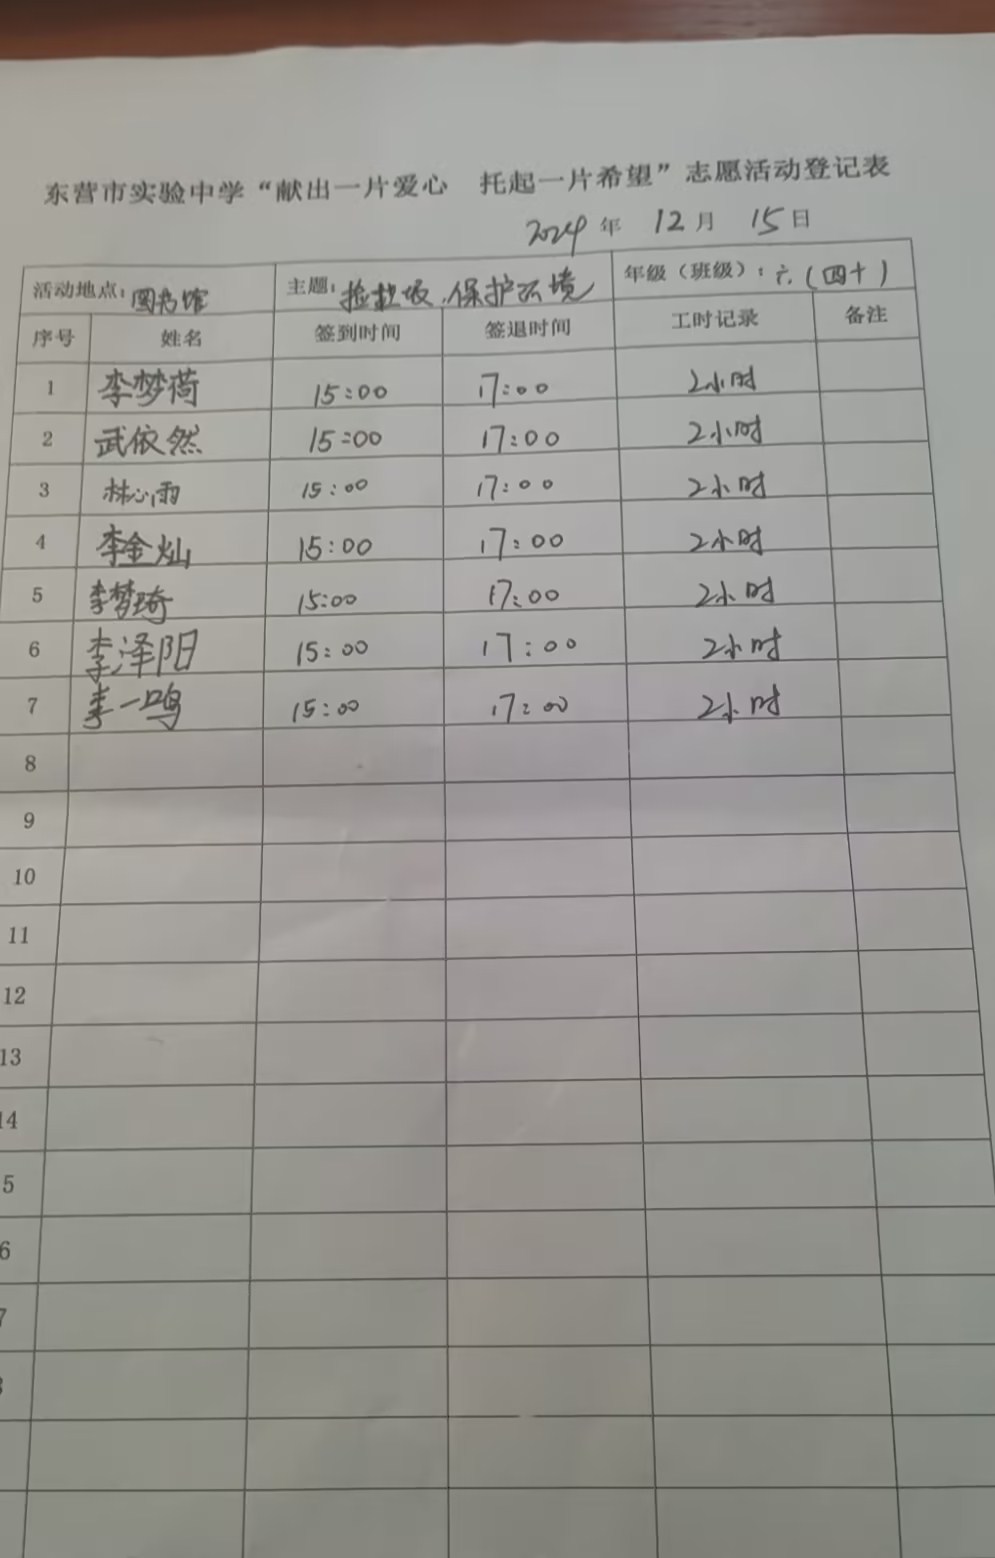 东营市实验中学“献出一片爱心 托起一片希望”志愿活动登记表
2024年 12月 15日
活动地点：图书馆 主题：捡垃圾、保护环境 年级（班级）：六（四十）
序号 姓名 签到时间 签退时间 工时记录 备注
1 李梦荷 15:00 17:00 2小时
2 武依然 15:00 17:00 2小时
3 林心雨 15:00 17:00 2小时
4 李金灿 15:00 17:00 2小时
5 李梦琦 15:00 17:00 2小时
6 李泽阳 15:00 17:00 2小时
7 李一鸣 15:00 17:00 2小时
8
9
10
11
12
13
14
5
6
7